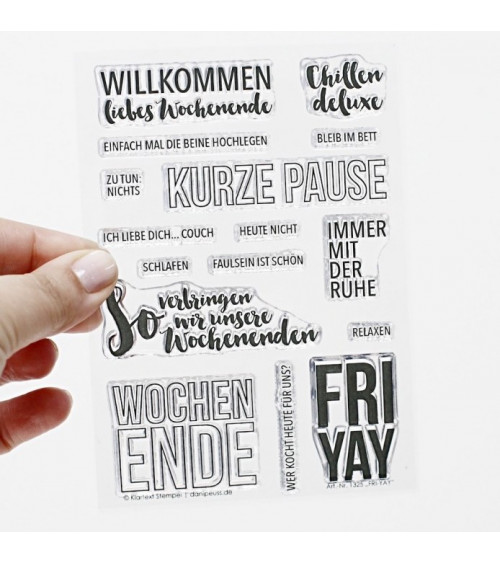 WILLKOMMEN
liebes Wochenende
Chillen
deluxe
EINFACH MAL DIE BEINE HOCHLEGEN
BLEIB IM BETT
ZU TUN:
NICHTS
KURZE PAUSE
ICH LIEBE DICH... COUCH
HEUTE NICHT
IMMER
MIT
DER
RUHE
SCHLAFEN
FAULSEIN IST SCHÖN
So verbringen
wir unsere
Wochenenden
RELAXEN
WOCHEN
ENDE
WER KOCHT HEUTE FÜR UNS?
FRI
YAY
© Klartext Stempel | danipeuss.de
Art.-Nr. 1325 „FRI-YAY"